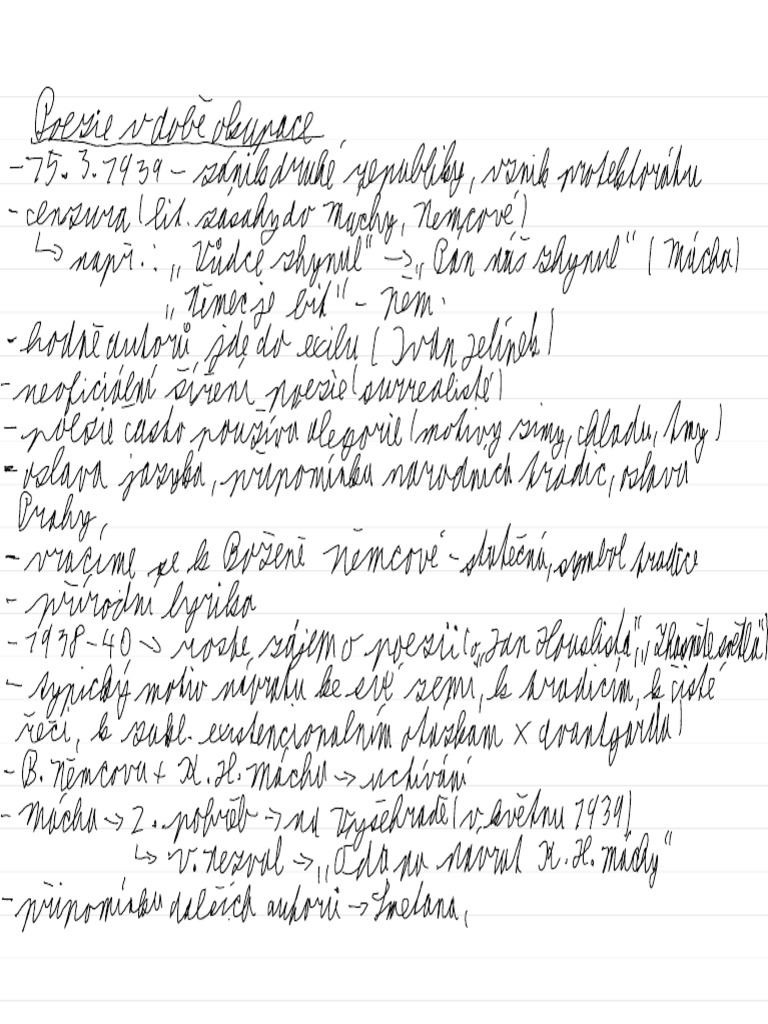 Poezie v době okupace
- 15. 3. 1939 - zánik druhé republiky, vznik protektorátu
- cenzura (lit. zásahy do Máchy, Němcové)
↳ např.: „Vůdce zhynul" → „Pán náš zhynul" (Mácha)
„Němec je bit" - něm.
- hodně autorů jde do exilu (Ivan Jelínek)
- neoficiální šíření poezie (surrealisté)
- poezie často používá alegorie (motivy zimy, chladu, tmy)
- oslava jazyka, připomínka národních tradic, oslava
Prahy,
- vracíme se k Boženě Němcové - statečná, symbol tradice
- přírodní lyrika
- 1938-40 → roste zájem o poezii („Jan Houslista", „Zhasněte světla")
- typický motiv návratu ke své zemi, k tradicím, k čisté
řeči, k zákl. existencionalním otázkám x avantgarda)
- B. Němcová + K. H. Mácha → uctívání
- Mácha → 2. pohřeb → na Vyšehradě (v květnu 1939)
↳ V. Nezval → „Óda na návrat K. H. Máchy"
- připomínka dalších autorů → Smetana,